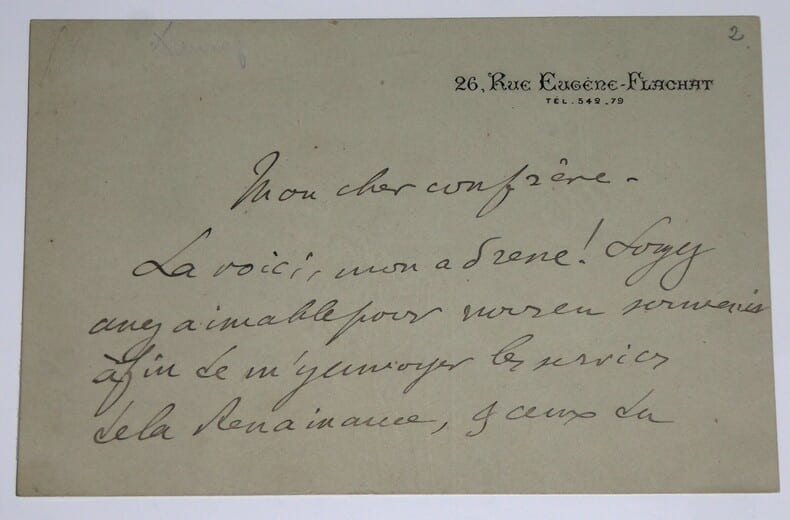 2
26, Rue Eugène-Flachat
TÉL. 542.79
Mon cher confrère -
La voici, mon adresse! Soyez
assez aimable pour vous en souvenir
afin de m'y envoyer les services
de la Renaissance, & ceux du